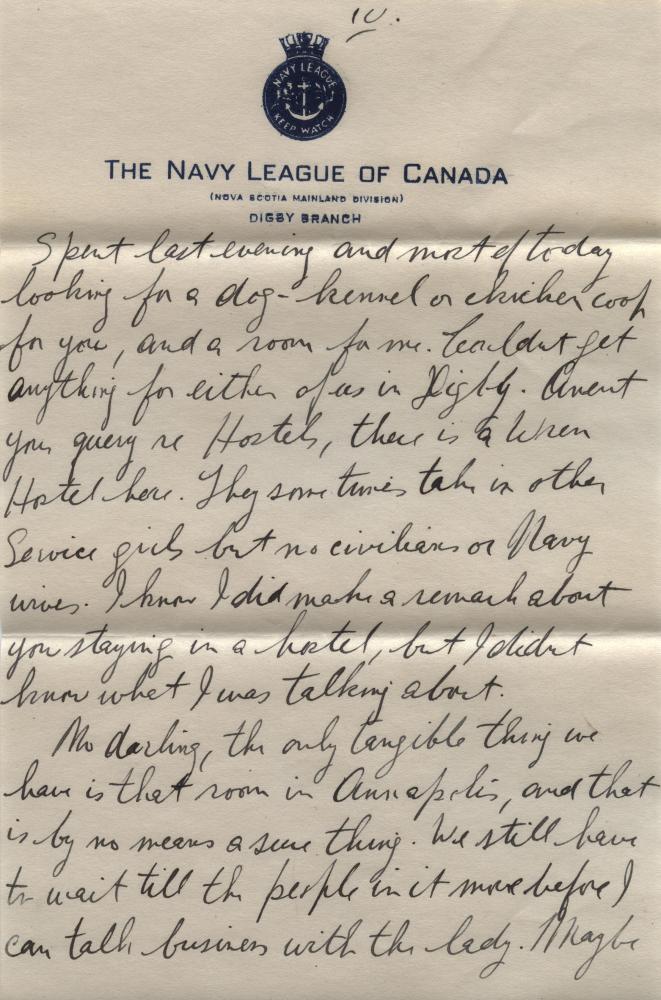 10.
NAVY LEAGUE
KEEP WATCH
THE NAVY LEAGUE OF CANADA
(NOVA SCOTIA MAINLAND DIVISION)
DIGBY BRANCH
Spent last evening and most of today
looking for a dog-kennel or chicken coop
for you, and a room for me. Couldnt get
anything for either of us in Digby. Anent
your query re Hostels, there is a Wren
Hostel here. They sometimes take in other
Service girls but no civilians or Navy
wives. I know I did make a remark about
you staying in a hostel, but I didnt
know what I was talking about.
No darling, the only tangible thing we
have is that room in Annapolis, and that
is by no means a sure thing. We still have
to wait till the people in it move before I
can talk business with the lady. Maybe